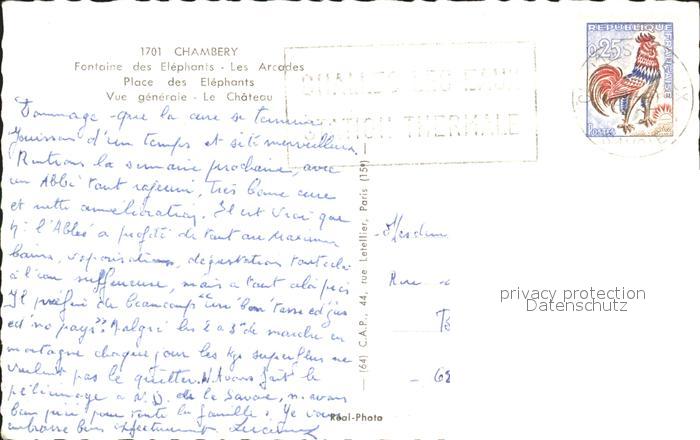 1701 CHAMBERY
Fontaine des Eléphants - Les Arcades
Place des Eléphants
Vue générale - Le Château
CHALLES LES EAUX
STATION THERMALE
REPUBLIQUE FRANÇAISE
0,25
Postes
Dommage que la cure se termine
Jouissons d'un temps et site merveilleux.
Rentrons la semaine prochaine, avec
un Abbé tant rajeuni, très bonne cure
et nette amélioration. Il est vrai que
l'Abbé a profité de tout au maximum
bains, vaporisations, dégustation tout cela
à l'eau sulfureuse, mais a tout cela
Il préfère de beaucoup "une bon' tasse d'jus
ed'no pays". Malgré les 2 à 3h de marche en
montagne chaque jour les kgs superflus ne
veulent pas le quitter. Avons fait le
pèlerinage à N.D. de la Savoie, n. avons
bien prié pour toute la famille. Je vous
embrasse bien affectueusement. Lucienne
(64) C.A.P., 44, rue Letellier, Paris (15e)
Mesdem
Rue
68
Réal-Photo
privacy protection
Datenschutz